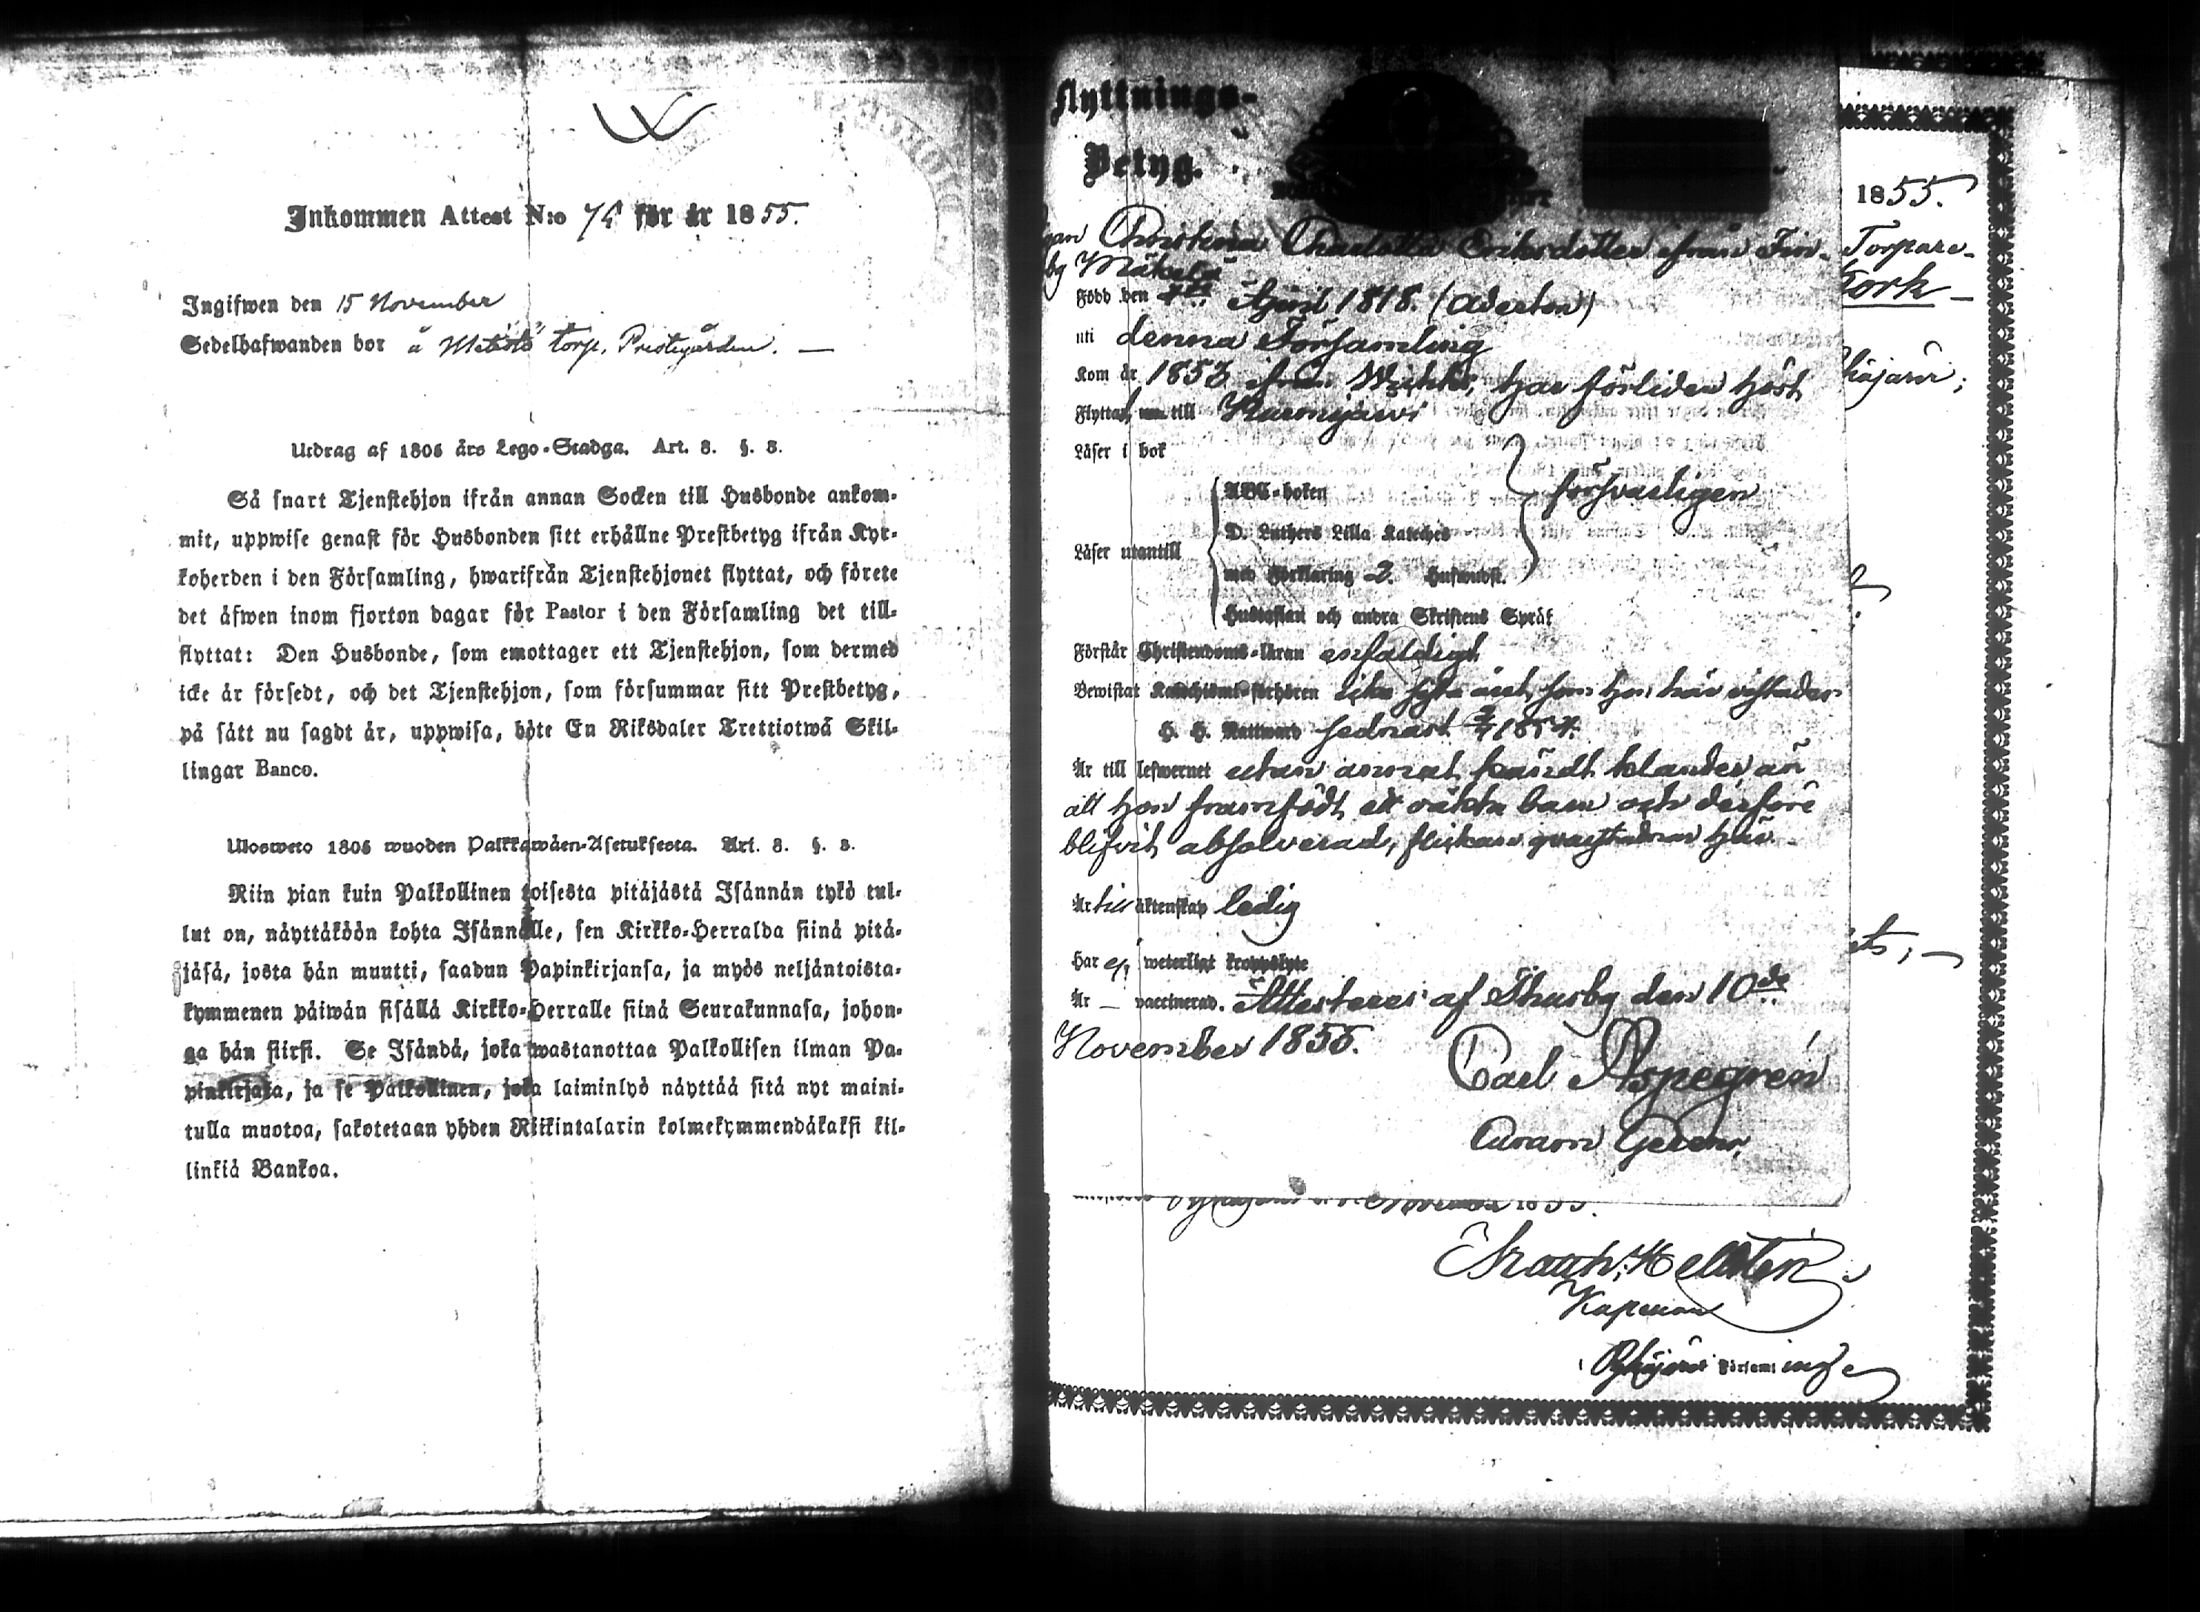 Inkommen Attest N:o 74 för år 1855.
Ingifwen den 15 November
Sedelhafwanden bor å torp, Prestegården.
Utdrag af 1805 års Lego-Stadga. Art. 8. §. 8.
Så snart Tjenstehjon ifrån annan Socken till Husbonde ankom-
mit, uppwise genast för Husbonden sitt erhållne Prestbetyg ifrån Kyr-
koherden i den Församling, hwarifrån Tjenstehjonet flyttat, och förete
det äfwen inom fjorton dagar för Pastor i den Församling det till-
flyttat: Den Husbonde, som emottager ett Tjenstehjon, som dermed
icke är försedt, och det Tjenstehjon, som försummar sitt Prestbetyg,
på sätt nu sagdt är, uppwisa, böte En Riksdaler Trettiotwå Skil-
lingar Banco.
Ulosweto 1805 wuoden Palkkawäen-Asetuksesta. Art. 8. §. 8.
Niin pian kuin Palkollinen toisesta pitäjästä Isännän tykö tul-
lut on, näyttäköön kohta Isännälle, sen Kirkko-Herralda siinä pitä-
jäsä, josta hän muutti, saadun Papinkirjansa, ja myös neljäntoista-
kymmenen päiwän sisällä Kirkko-Herralle siinä Seurakunnasa, johon-
ga hän siirsi. Se Isändä, joka wastanottaa Palkollisen ilman Pa-
pinkirjata, ja se Palkollinen, joka laiminlyö näyttää sitä nyt maini-
tulla muotoa, sakotetaan yhden Riikintalarin kolmekymmendäkaksi kil-
linkiä Bankoa.
Flyttnings-
Betyg.
Christina Charlotta Eriksdotter ifrån Fin-
by Mäkelä
Född den April 1818. (Aderton)
uti denna Församling
Kom år 1853 ifrån Wichtis, har förliden höst
Flyttat till Nurmijärvi
Läser i bok
ABC-boken försvarligen
D. Luthers Lilla Kateches
Läser utantill
med Förklaring 2. Hufwudst.
Hustaflan och andra Skriftens Språk
Förstår Christendoms-läran enfaldigt
Bewistat Katechismi-förhören icke sista året, som hon här vistades
H. H. Nattward sednast 1854.
Är till lefwernet utan annat kändt klander än
att hon framfödt ett oäkta barn och derföre
blifvit absolverad,
Är till äktenskap ledig
Har ej weterligt kroppslyte
Är — vaccinerad. Attesteras af Thusby den 10de
November 1855.
Carl Aspegrén
Curam Gerens.
1855.
Torpare-
November 1855.
Hellstén
Kapellan
i Pyhäjärvi Församling